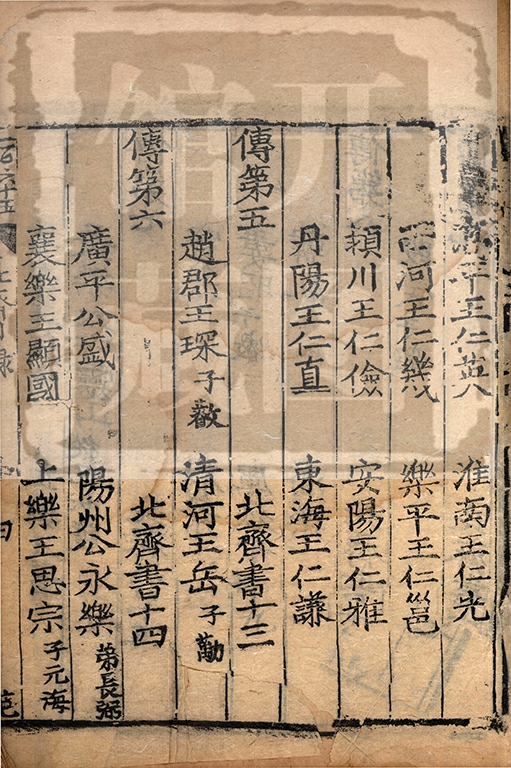 平王仁英 淮南王仁光
西河王仁幾 樂平王仁邕
潁川王仁儉 安陽王仁雅
丹陽王仁直 東海王仁謙
傳第五 北齊書十三
趙郡王琛子叡 清河王岳子勱
傳第六 北齊書十四
廣平公盛 陽州公永樂弟長弼
襄樂王顯國 上樂王思宗子元海